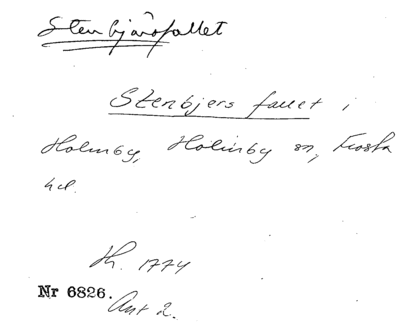 Stenbjärsfallet
Stenbjers fallet i
Holmby, Holmby sn, Frosta
hd.
Hh. 1774
Nr 6826.
Ant 2.